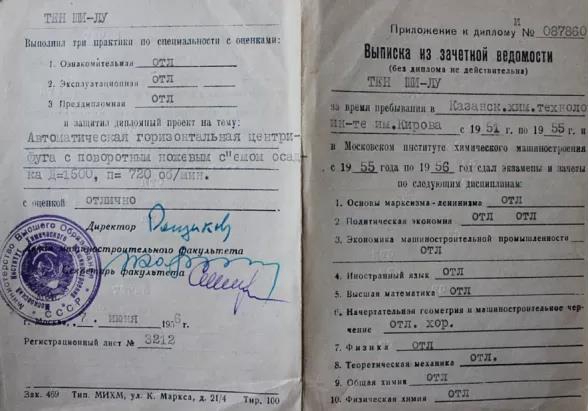 ТЕН ШИ-ЛУ
Выполнил три практики по специальности с оценками:
1. Ознакомительная ОТЛ
2. Эксплуатационная ОТЛ
3 Преддипломная ОТЛ
и защитил дипломный проект на тему:
Автоматическая горизонтальная центри-
фуга с поворотным ножевым с"емом осад
ка Д=1500, п= 720 об/мин.
с оценкой ОТЛИЧНО
Директор
машиностроительного факультета
Секретарь факультета
Министерство Высшего Образования
СССР
г. Москва 7 июня 1956 г.
Регистрационный лист № 3212
Зак. 469 Тип. МИХМ, ул. К. Маркса, д. 21/4 Тир. 100
И
Приложение к диплому № 087860
Выписка из зачетной ведомости
(без диплома не действительна)
ТЕН ШИ-ЛУ
за время пребывания в Казанск.хим.техноло
ин-те им.Кирова с 1951 г. по 1955 г. и
в Московском институте химического машиностроения
с 1955 года по 1956 год сдал экзамены и зачеты
по следующим дисциплинам:
1. Основы марксизма-ленинизма ОТЛ
2. Политическая экономия ОТЛ ОТЛ
3. Экономика машиностроительной промышленности
ОТЛ
4. Иностранный язык ОТЛ
5. Высшая математика ОТЛ
6. Начертательная геометрия и машиностроительное чер-
чение ОТЛ. ХОР.
7. Физика ОТЛ
8. Теоретическая механика ОТЛ.
9. Общая химия ОТЛ
10. Физическая химия ОТЛ